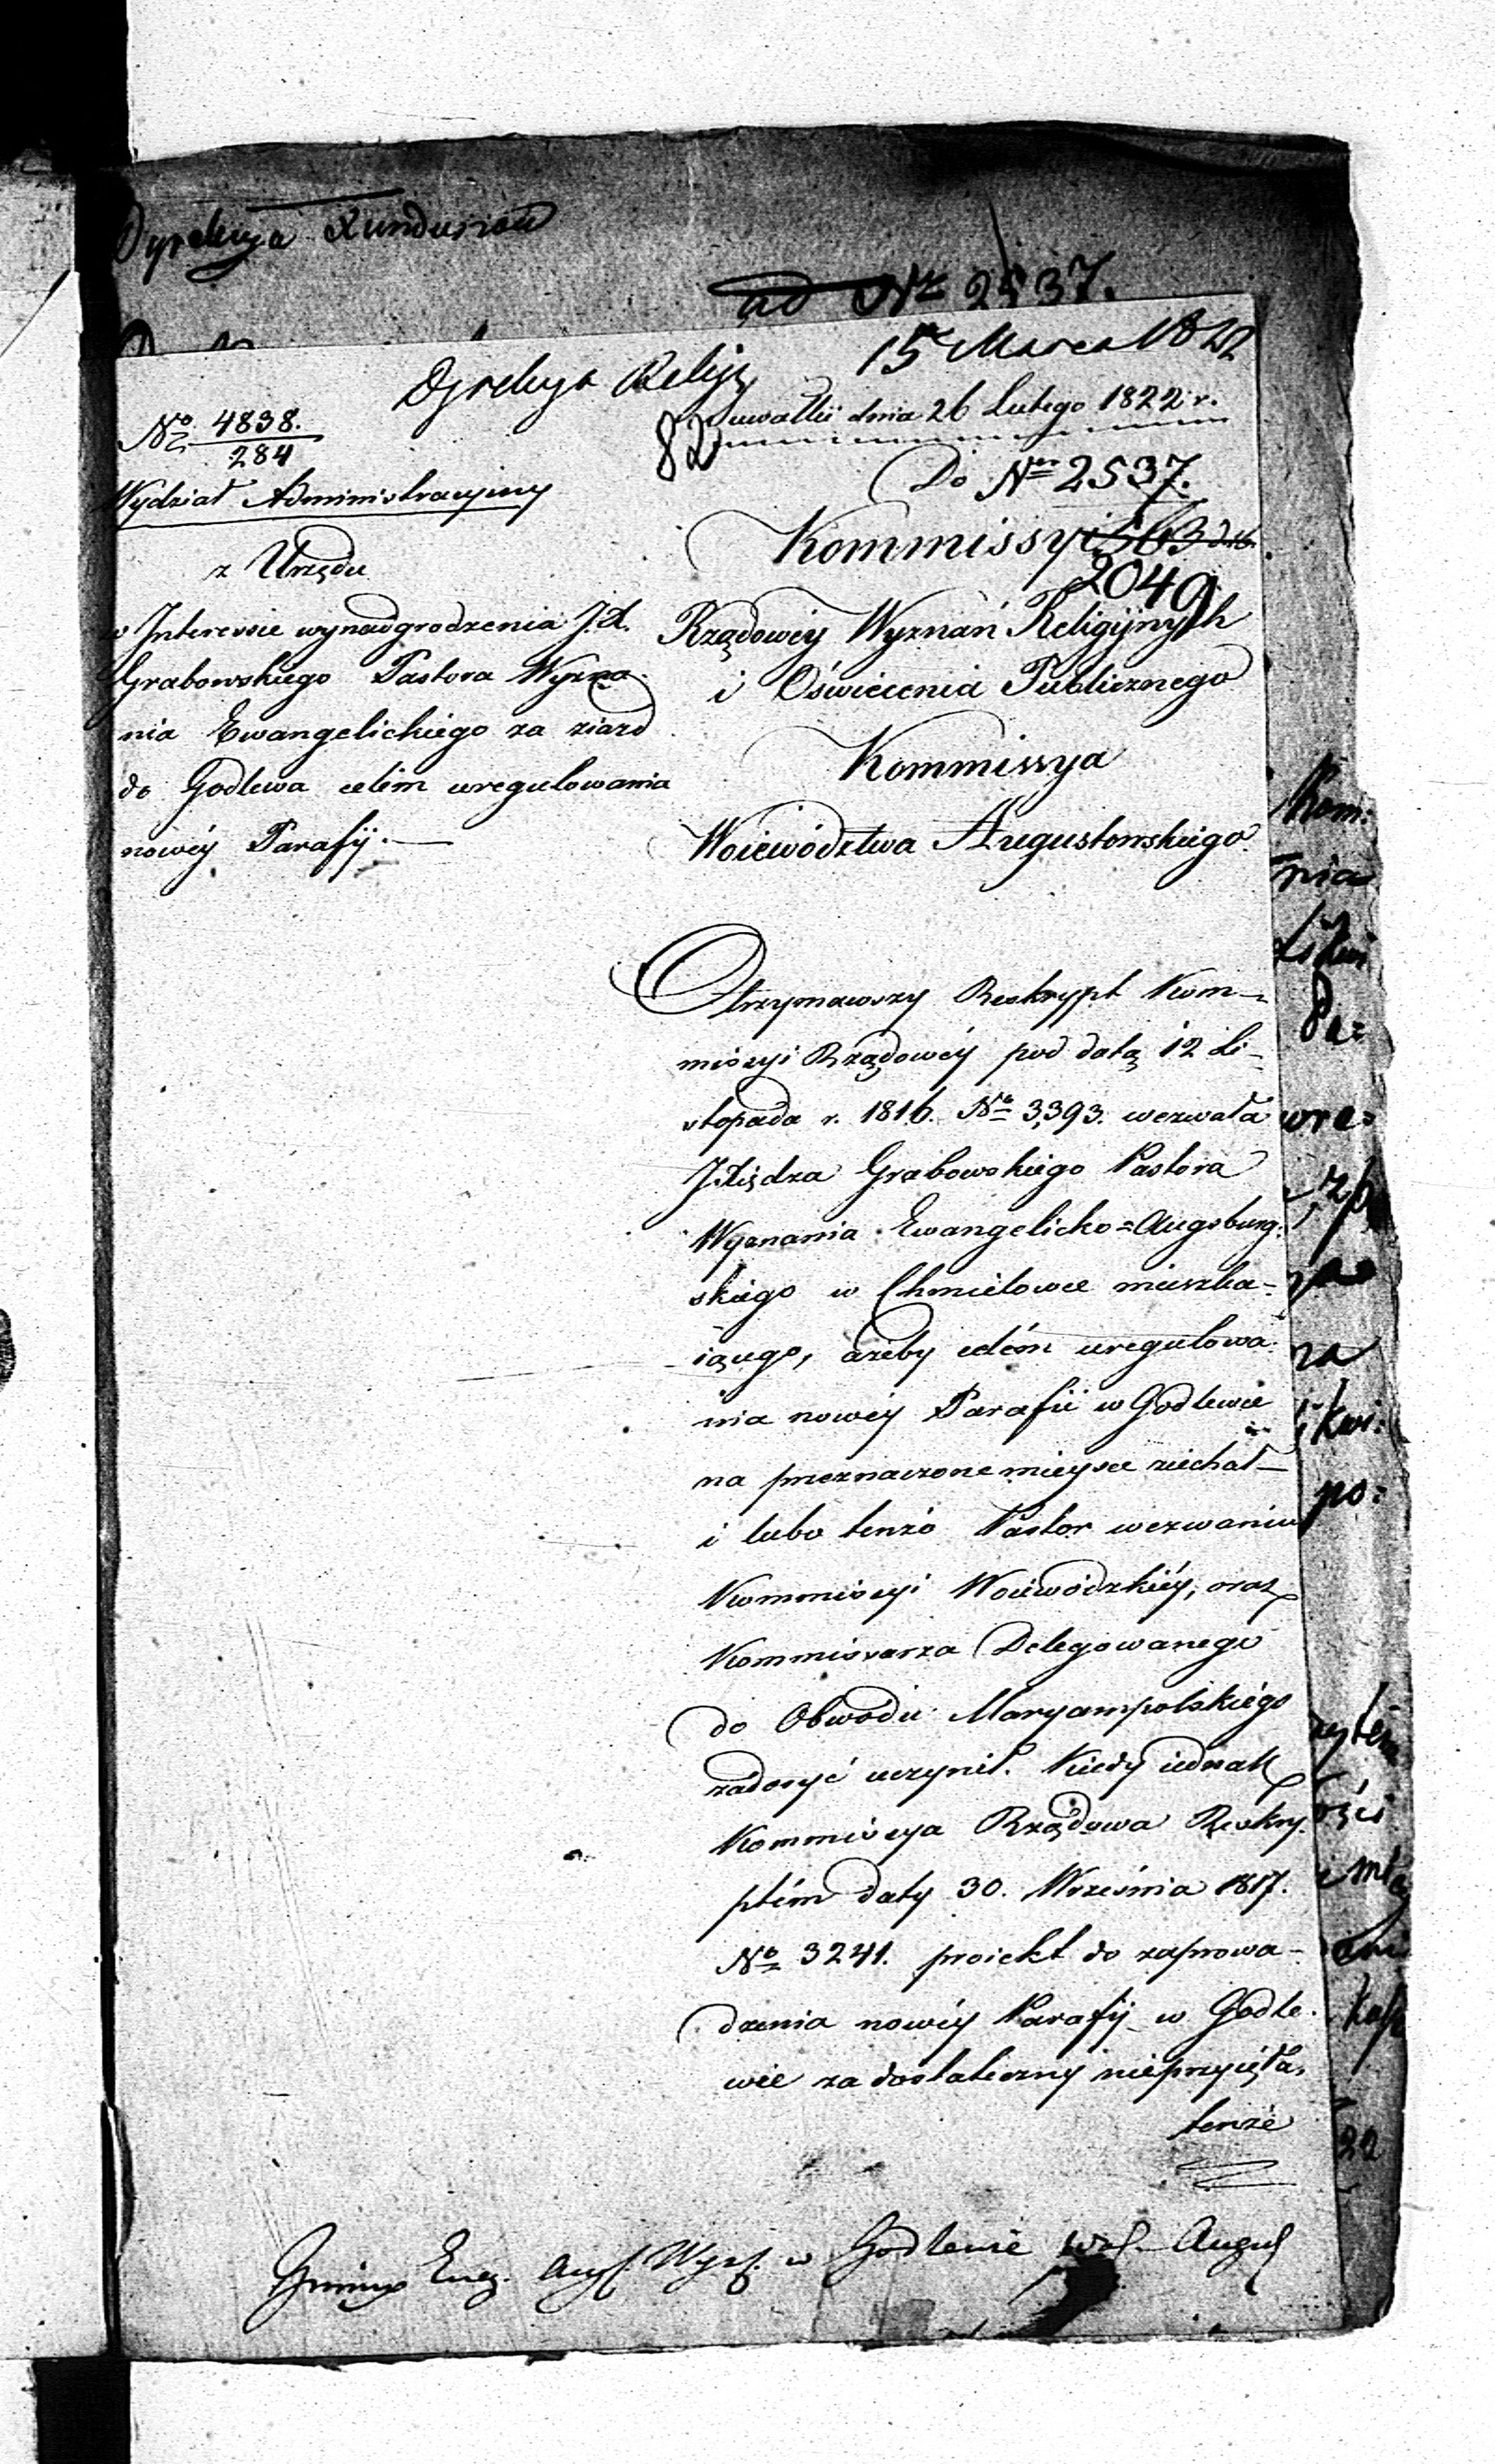 Dyrekcya Funduszów
ad Nr 2537.
Dyrekcya Religij
15 Marca 1822
No 4838.
284
Suwałki dnia 26 Lutego 1822 r.
82
Do Nru 2537.
Wydział Administracyjny
Kommissyi
2049
z Urzędu
Rządowéy Wyznań Religijnych
i Oświecenia Publicznego
w Interessie wynadgrodzenia J.X.
Grabowskiego Pastora Wyzna-
nia Ewangelickiego za ziazd
do Godlewa celém uregulowania
nowéy Parafij.—
Kommissya
Woiewództwa Augustowskiego.
Otrzymawszy Reskrypt Kom-
missyi Rządowéy pod datą 12 Li-
stopada r. 1816. No 3,393. wezwała
JXiędza Grabowskiego Pastora
Wyznania Ewangelicko=Augsburg-
skiego w Chmielowce mieszka-
iącego, ażeby celém uregulowa-
nia nowéy Parafii w Godlewie
na przeznaczone mieysce ziechał—
i lubo tenże Pastor wezwaniu
Kommissyi Woiewódzkiéy, oraz
Kommissarza Delegowanego
do Obwodu Maryampolskiégo
zadosyć uczynił. Kiedy iednak
Kommissya Rządowa Reskry-
ptém daty 30. Września 1817.
No 3241. proiekt do zaprowa-
dzenia nowéy Parafij w Godle-
wie za dostateczny nieprzyięła,
tenże
Gmina Ewg. Augs. Wyzn. w Godlewie Wój. August
Kom:
nia
wre=
za
po: